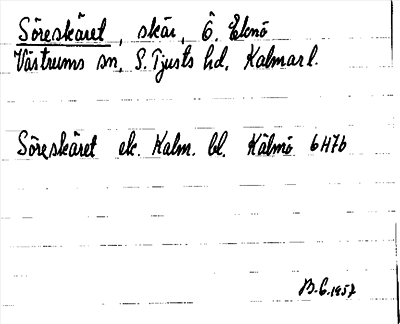 Söreskäret, skär, Ö. Eknö
Västrums sn, S. Tjusts hd. Kalmar l.
Söreskäret ek. Kalm. bl. Kälmö 6H7b
B.E. 1957